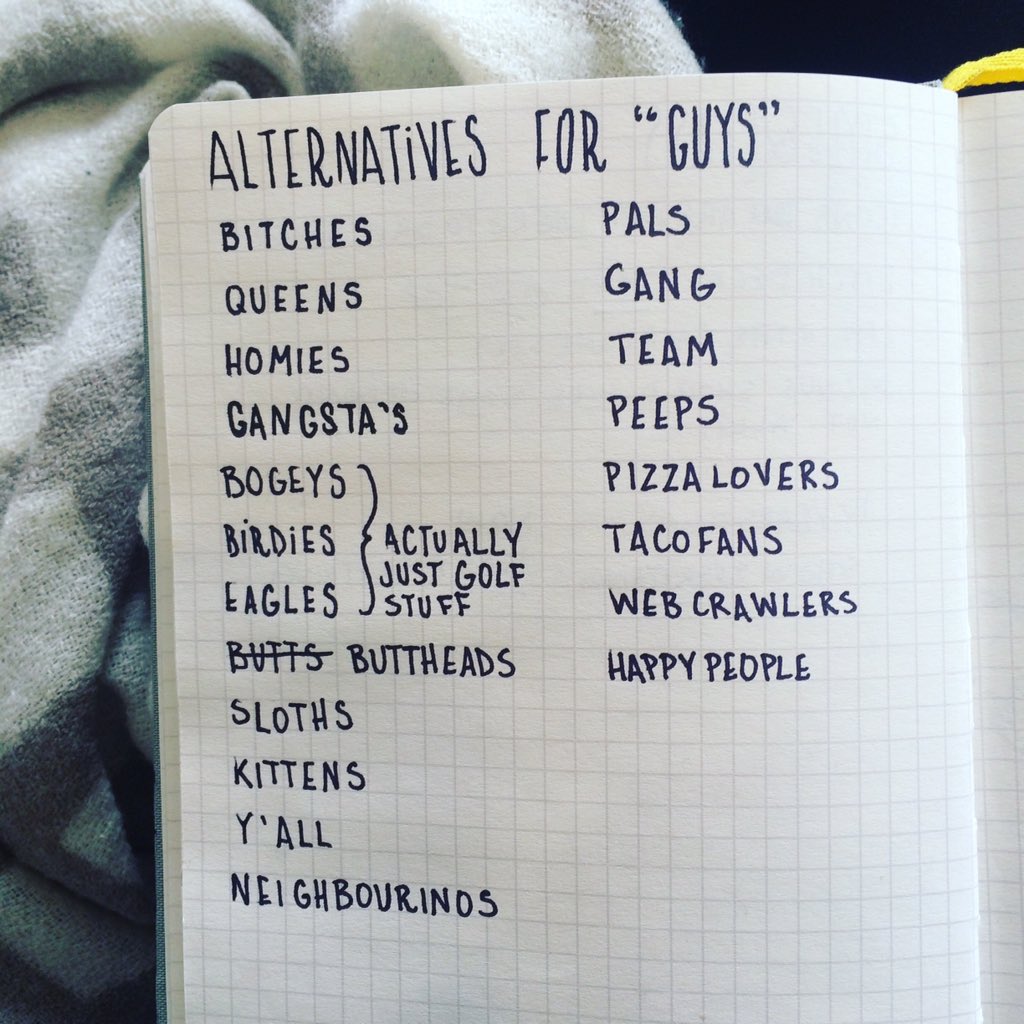 ALTERNATIVES FOR "GUYS"
BITCHES
QUEENS
HOMIES
GANGSTA'S
BOGEYS
BIRDIES
EAGLES
ACTUALLY
JUST GOLF
STUFF
BUTTS BUTTHEADS
SLOTHS
KITTENS
Y'ALL
NEIGHBOURINOS
PALS
GANG
TEAM
PEEPS
PIZZA LOVERS
TACO FANS
WEB CRAWLERS
HAPPY PEOPLE